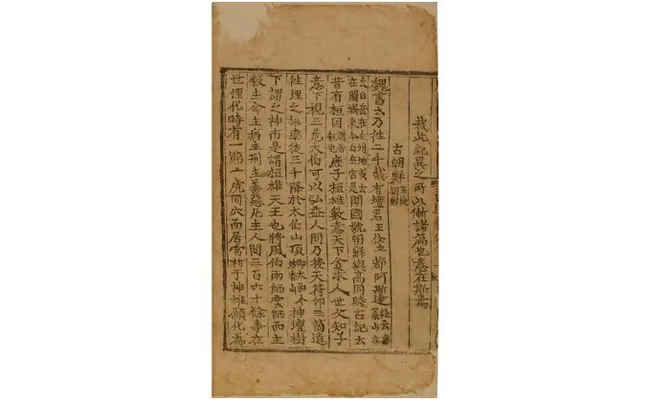 哉此紀異之所以慚諸篇也意在斯焉
古朝鮮王儉朝鮮
魏書云乃徃二千載有壇君王倹立都阿斯逹經云無葉山亦
云白岳在白州地或云在開城東今白岳宮是開國號朝鮮與高同時古記云
昔有桓囯謂帝釋也庶子桓雄數意天下貪求人世父知子
意下視三危太伯可以弘益人間乃授天符印三箇遣
徃理之雄率徒三千降於太伯山頂即太伯今妙香山神壇樹
下謂之神市是謂桓雄天王也將風伯雨師雲師而主
糓主命主病主刑主善惡凡主人間三百六十餘事在
世理化時有一熊一虎同穴而居常祈于神雄願化爲